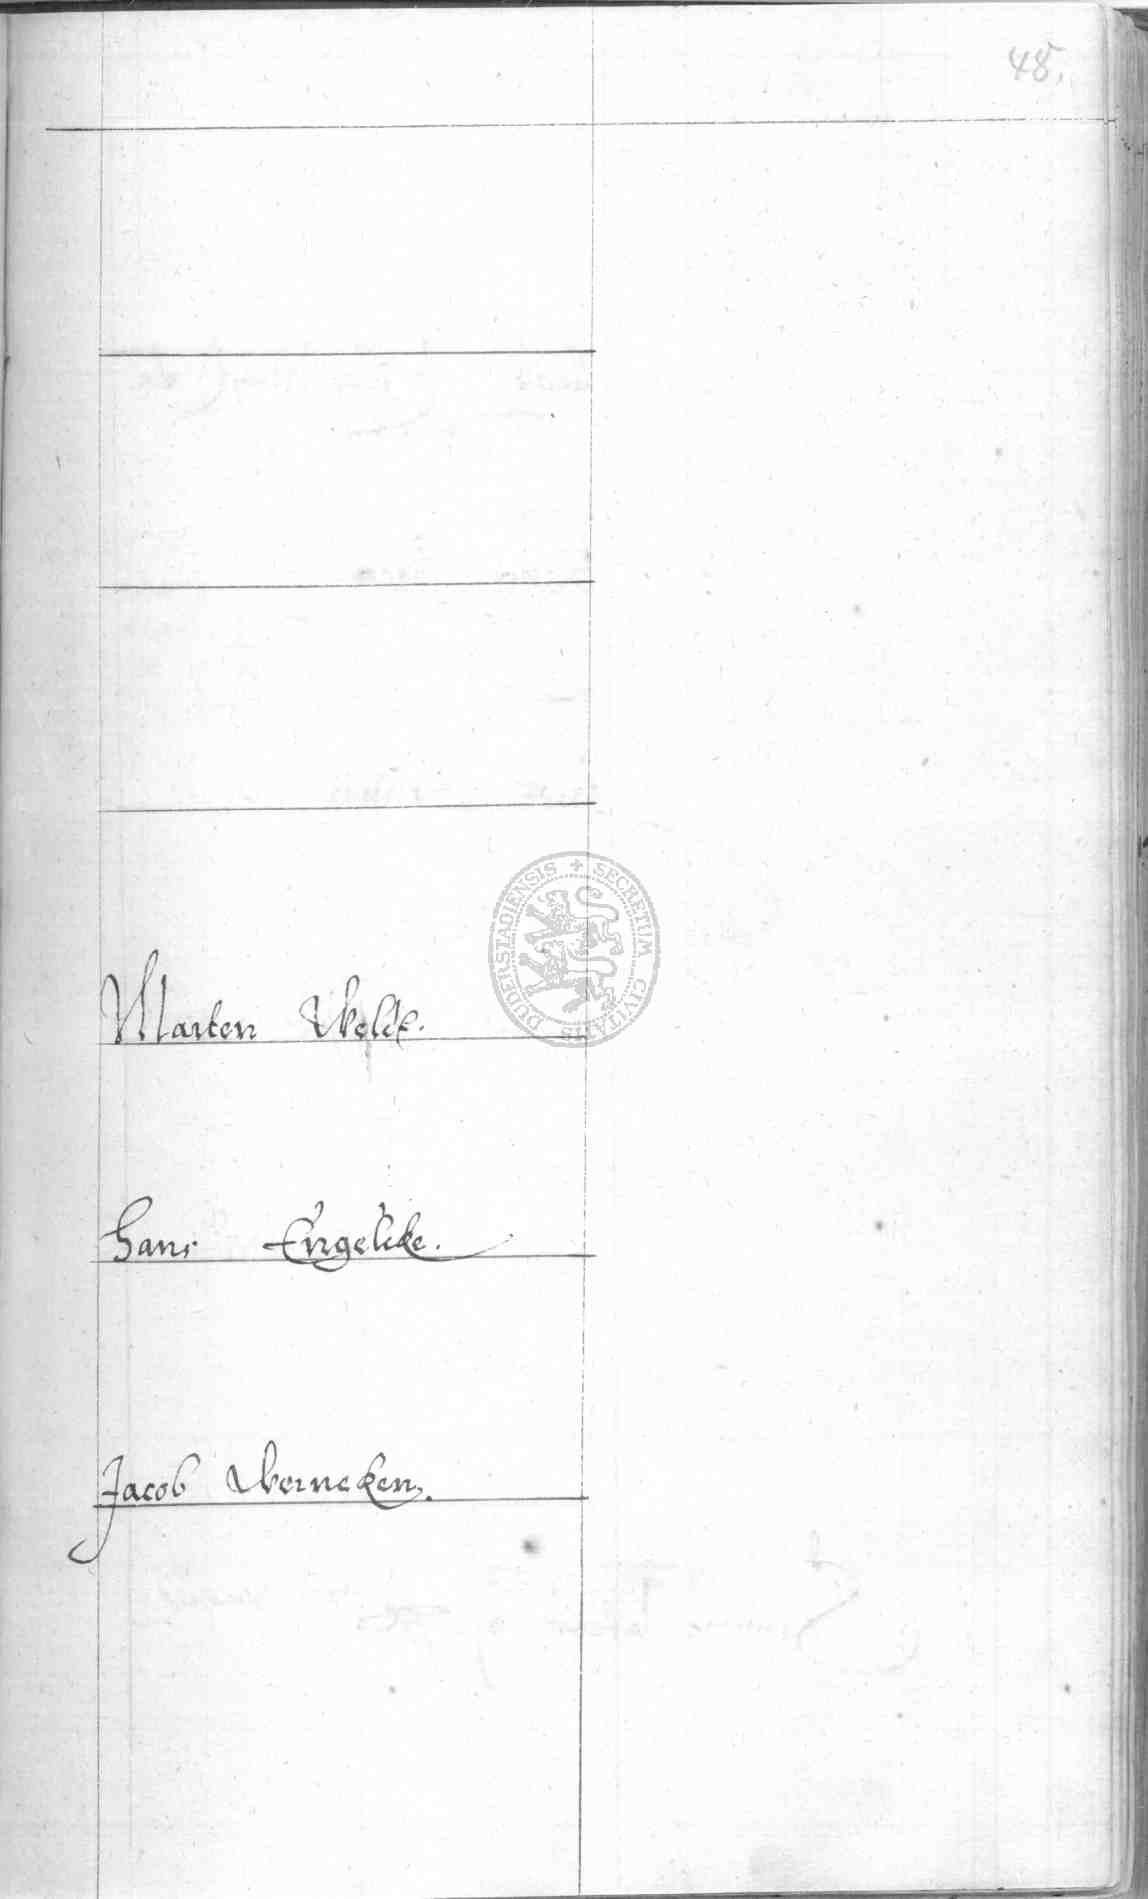 48.
Marten Wolff.
Hans Engelcke.
Jacob Werneken.
SECRETUM CIVITATIS DUDERSTADIENSIS